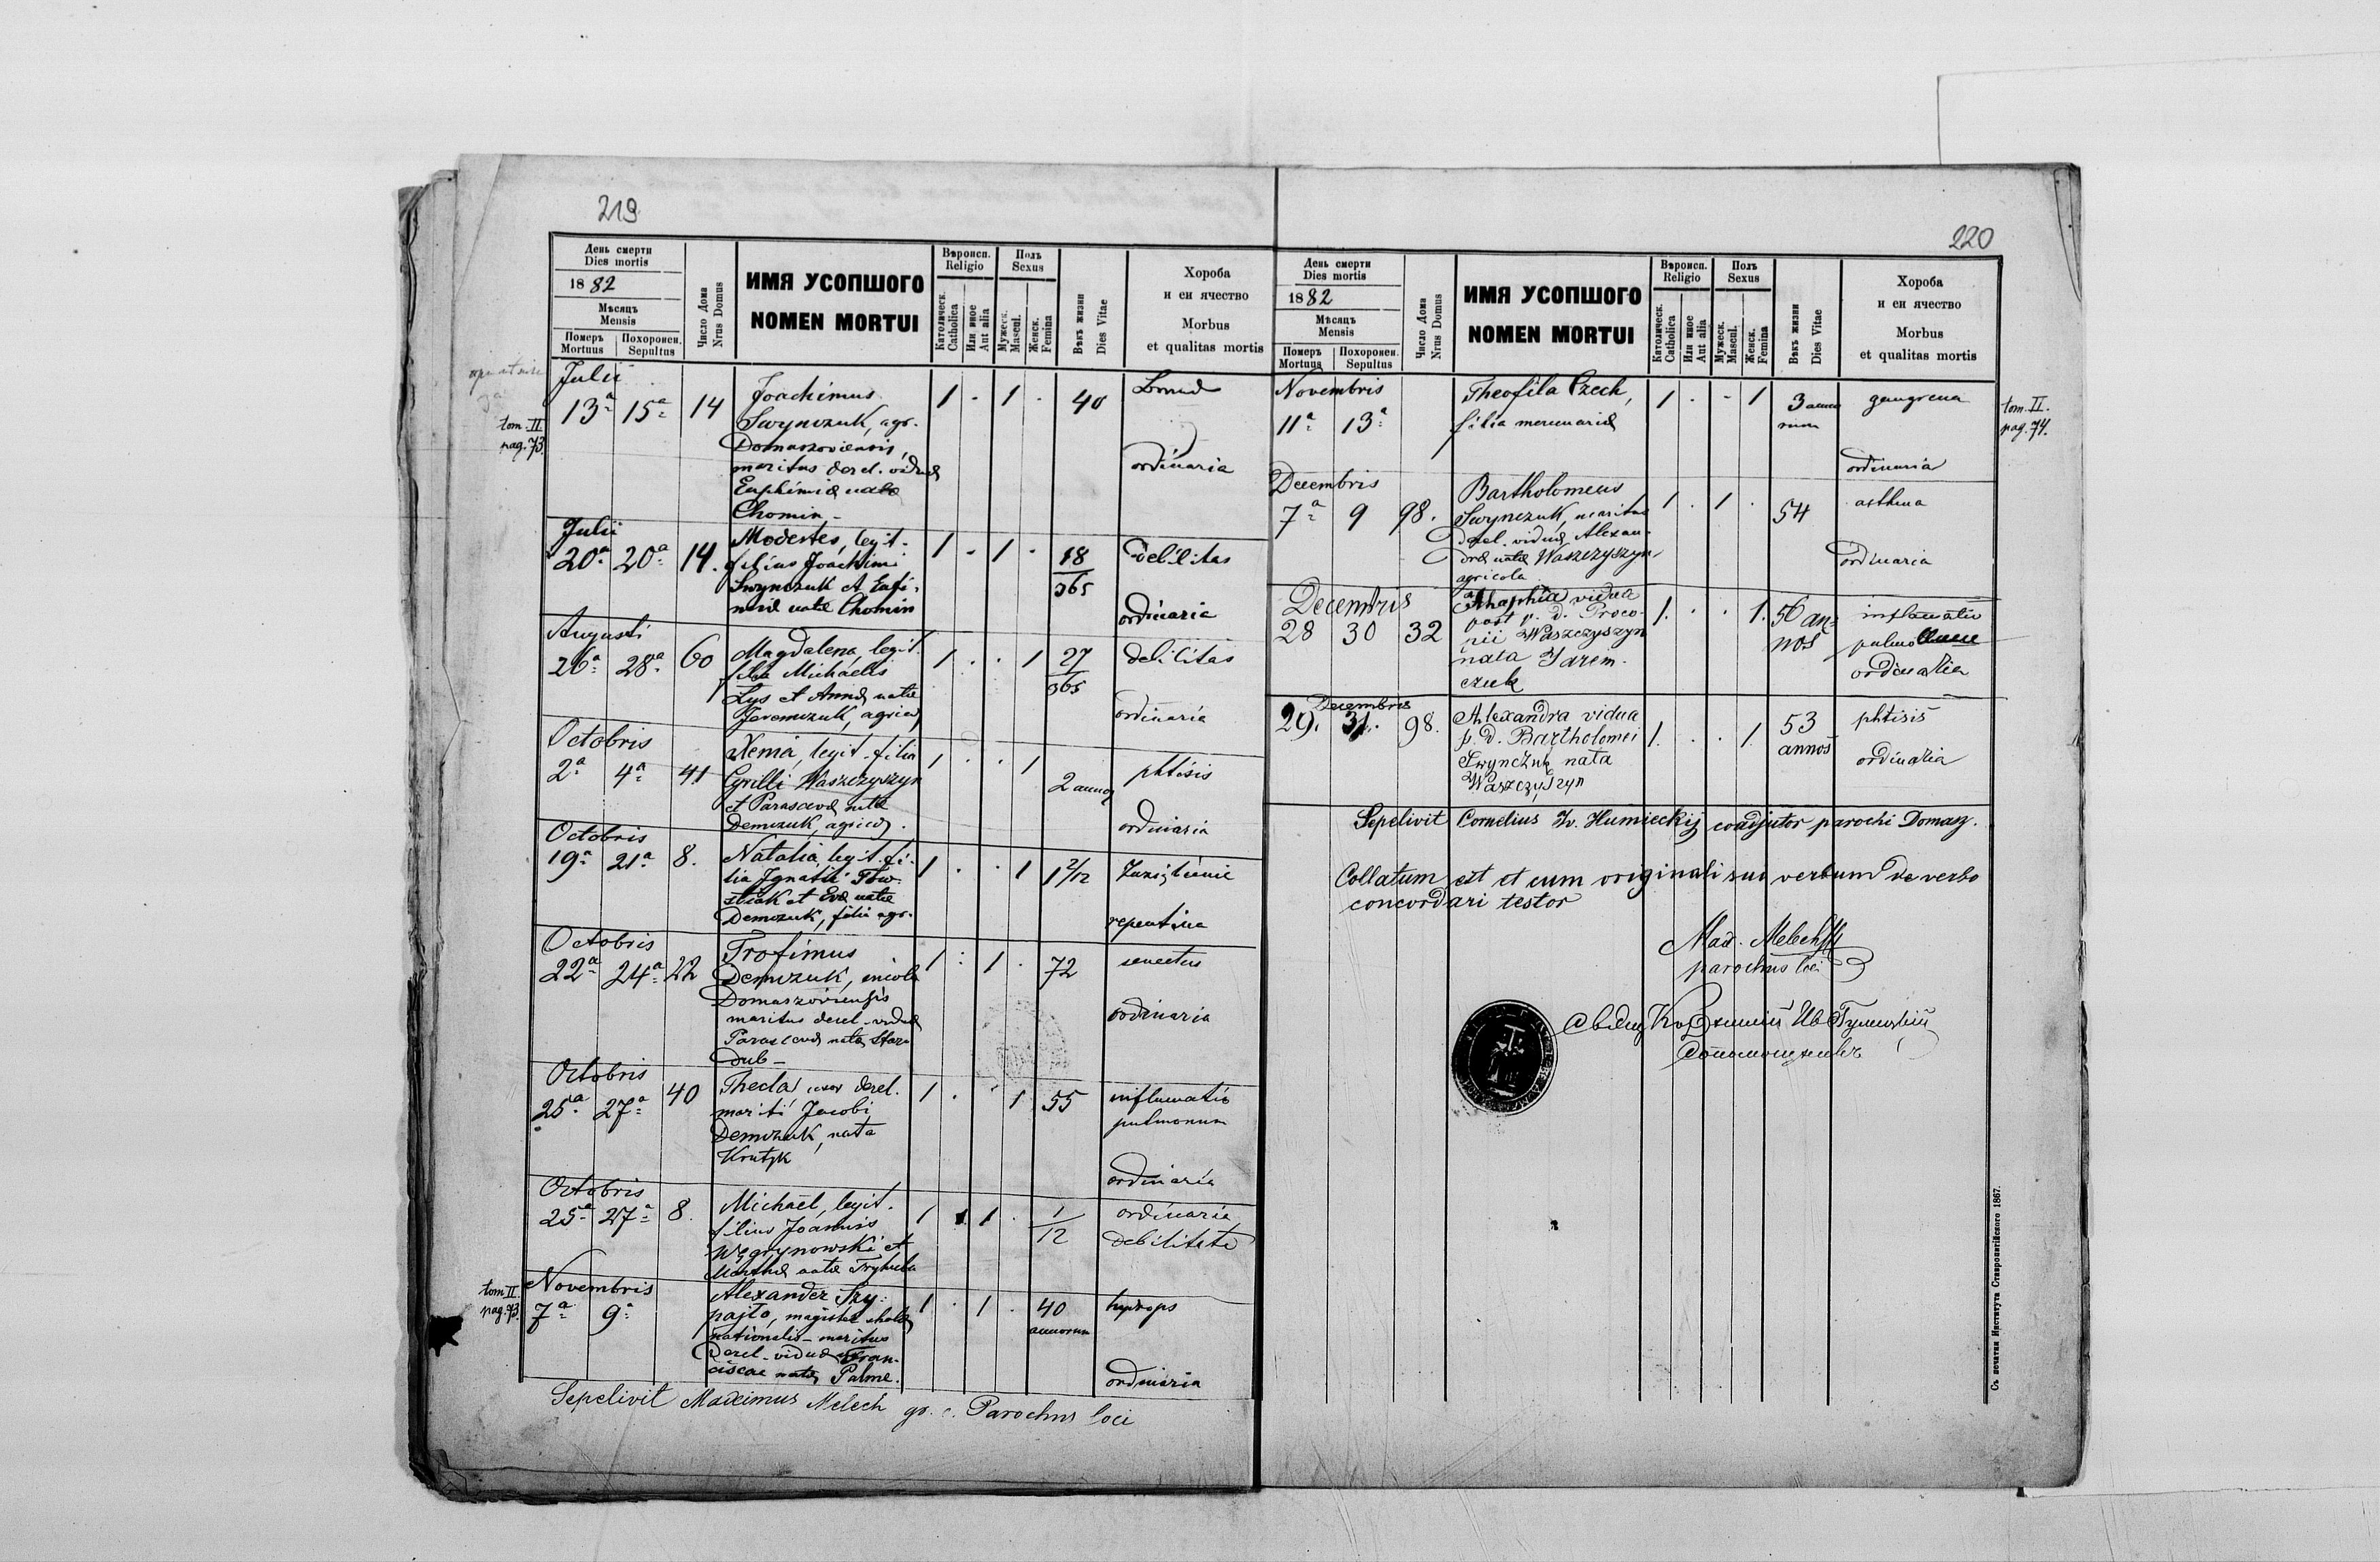 219
День смерти
Dies mortis
1882
Мѣсяцъ
Mensis
Померъ Mortuus
Похоронен. Sepultus
Число Дома
Nrus Domus
ИМЯ УСОПШОГО
NOMEN MORTUI
Вѣроисп.
Religio
Католическ. Catholica
Или иное Aut alia
Полъ
Sexus
Мужеск. Mascul.
Женск. Femina
Вѣкъ жизни
Dies Vitae
Хороба
и еи ячество
Morbus
et qualitas mortis
tom. II.
pag. 73.
Julii
13ª 15ª 14 Joachimus 1 . 1 . 40
Swynczuk, agr.
Domaszoviensis,
maritus derel. viduæ ordinaria
Euphimiæ natæ
Chomin -
Julii
20ª 20ª 14. Modestes, legit. 1 . 1 . 18/365 debilitas
filius Joachimi
Swynczuk et Eufi-
miæ natæ Chomin ordinaria
Augusti
26ª 28ª 60 Magdalena, legit. 1 . . 1 27/365 debilitas
filia Michaelis
Łys et Annæ natæ
Jaremczuk, agricol. ordinaria
Octobris
2ª 4ª 41 Xenia, legit. filia 1 . . 1 2 annos phtisis
Cyrilli Waszczyszyn
et Parascevæ natæ
Demczuk, agricol. ordinaria
Octobris
19ª 21ª 8. Natalia, legit. fi- 1 . . 1 1 2/12
lia Ignatii
et Evæ natæ
Demczuk, filia agr. repentina
Octobris
22ª 24ª 22 Trofimus 1 . 1 . 72 senectus
Demczuk, incola
Domaszoviensis
maritus derel. viduæ ordinaria
Parascevæ natæ Staro
dub -
Octobris
25ª 27ª 40 Thecla, uxor derel. 1 . . 1 55 inflamatio
mariti Jacobi pulmonum
Demczuk, nata
Krutyk ordinaria
Octobris
25ª 27ª 8. Michaël, legit. 1 . 1 . 1/12 ordinaria
filius Joannis debilitate
Węgrynowski et
Marthæ natæ
tom II.
pag. 73.
Novembris
7ª 9ª Alexander Szy- 1 . 1 . 40 hydrops
pajło, magister scholæ annorum
nationalis - maritus
derel. viduæ Fran-
ciscae natæ Palme. ordinaria
Sepelivit Maximus Melech gr. c. Parochus loci
220
День смерти
Dies mortis
1882
Мѣсяцъ
Mensis
Померъ Mortuus
Похоронен. Sepultus
Число Дома
Nrus Domus
ИМЯ УСОПШОГО
NOMEN MORTUI
Вѣроисп.
Religio
Католическ. Catholica
Или иное Aut alia
Полъ
Sexus
Мужеск. Mascul.
Женск. Femina
Вѣкъ жизни
Dies Vitae
Хороба
и еи ячество
Morbus
et qualitas mortis
tom. II.
pag. 74.
Novembris
11ª 13ª Theofila Czech, 1 . . 1 3 anno gangrena
filia mercenariæ rum
ordinaria
Decembris
7ª 9 98. Bartholomeus 1 . 1 . 54 asthma
Swynczuk, maritus
derel. viduæ Alexan-
dræ natæ Waszczyszyn ordinaria
agricola
Decembris
28 30 32 Ahaphia vidua 1. . . 1. 56 an- inflamatio
post p. d. Proco- nos
pii Waszczyszyn
nata Jarem- ordinaria
czuk
Decembris
29. 31. 98. Alexandra vidua 1. . . 1. 53 phtisis
p. d. Bartholomei annos
Swynczuk nata ordinaria
Waszczyszyn
Sepelivit Cornelius Iv. Humieckij coadjutor parochi Domasz.
Collatum est et cum originali sui verbum de verbo
concordari testor
Max. Melech
parochus loci
Съ печатни Института Ставропигійского 1867.